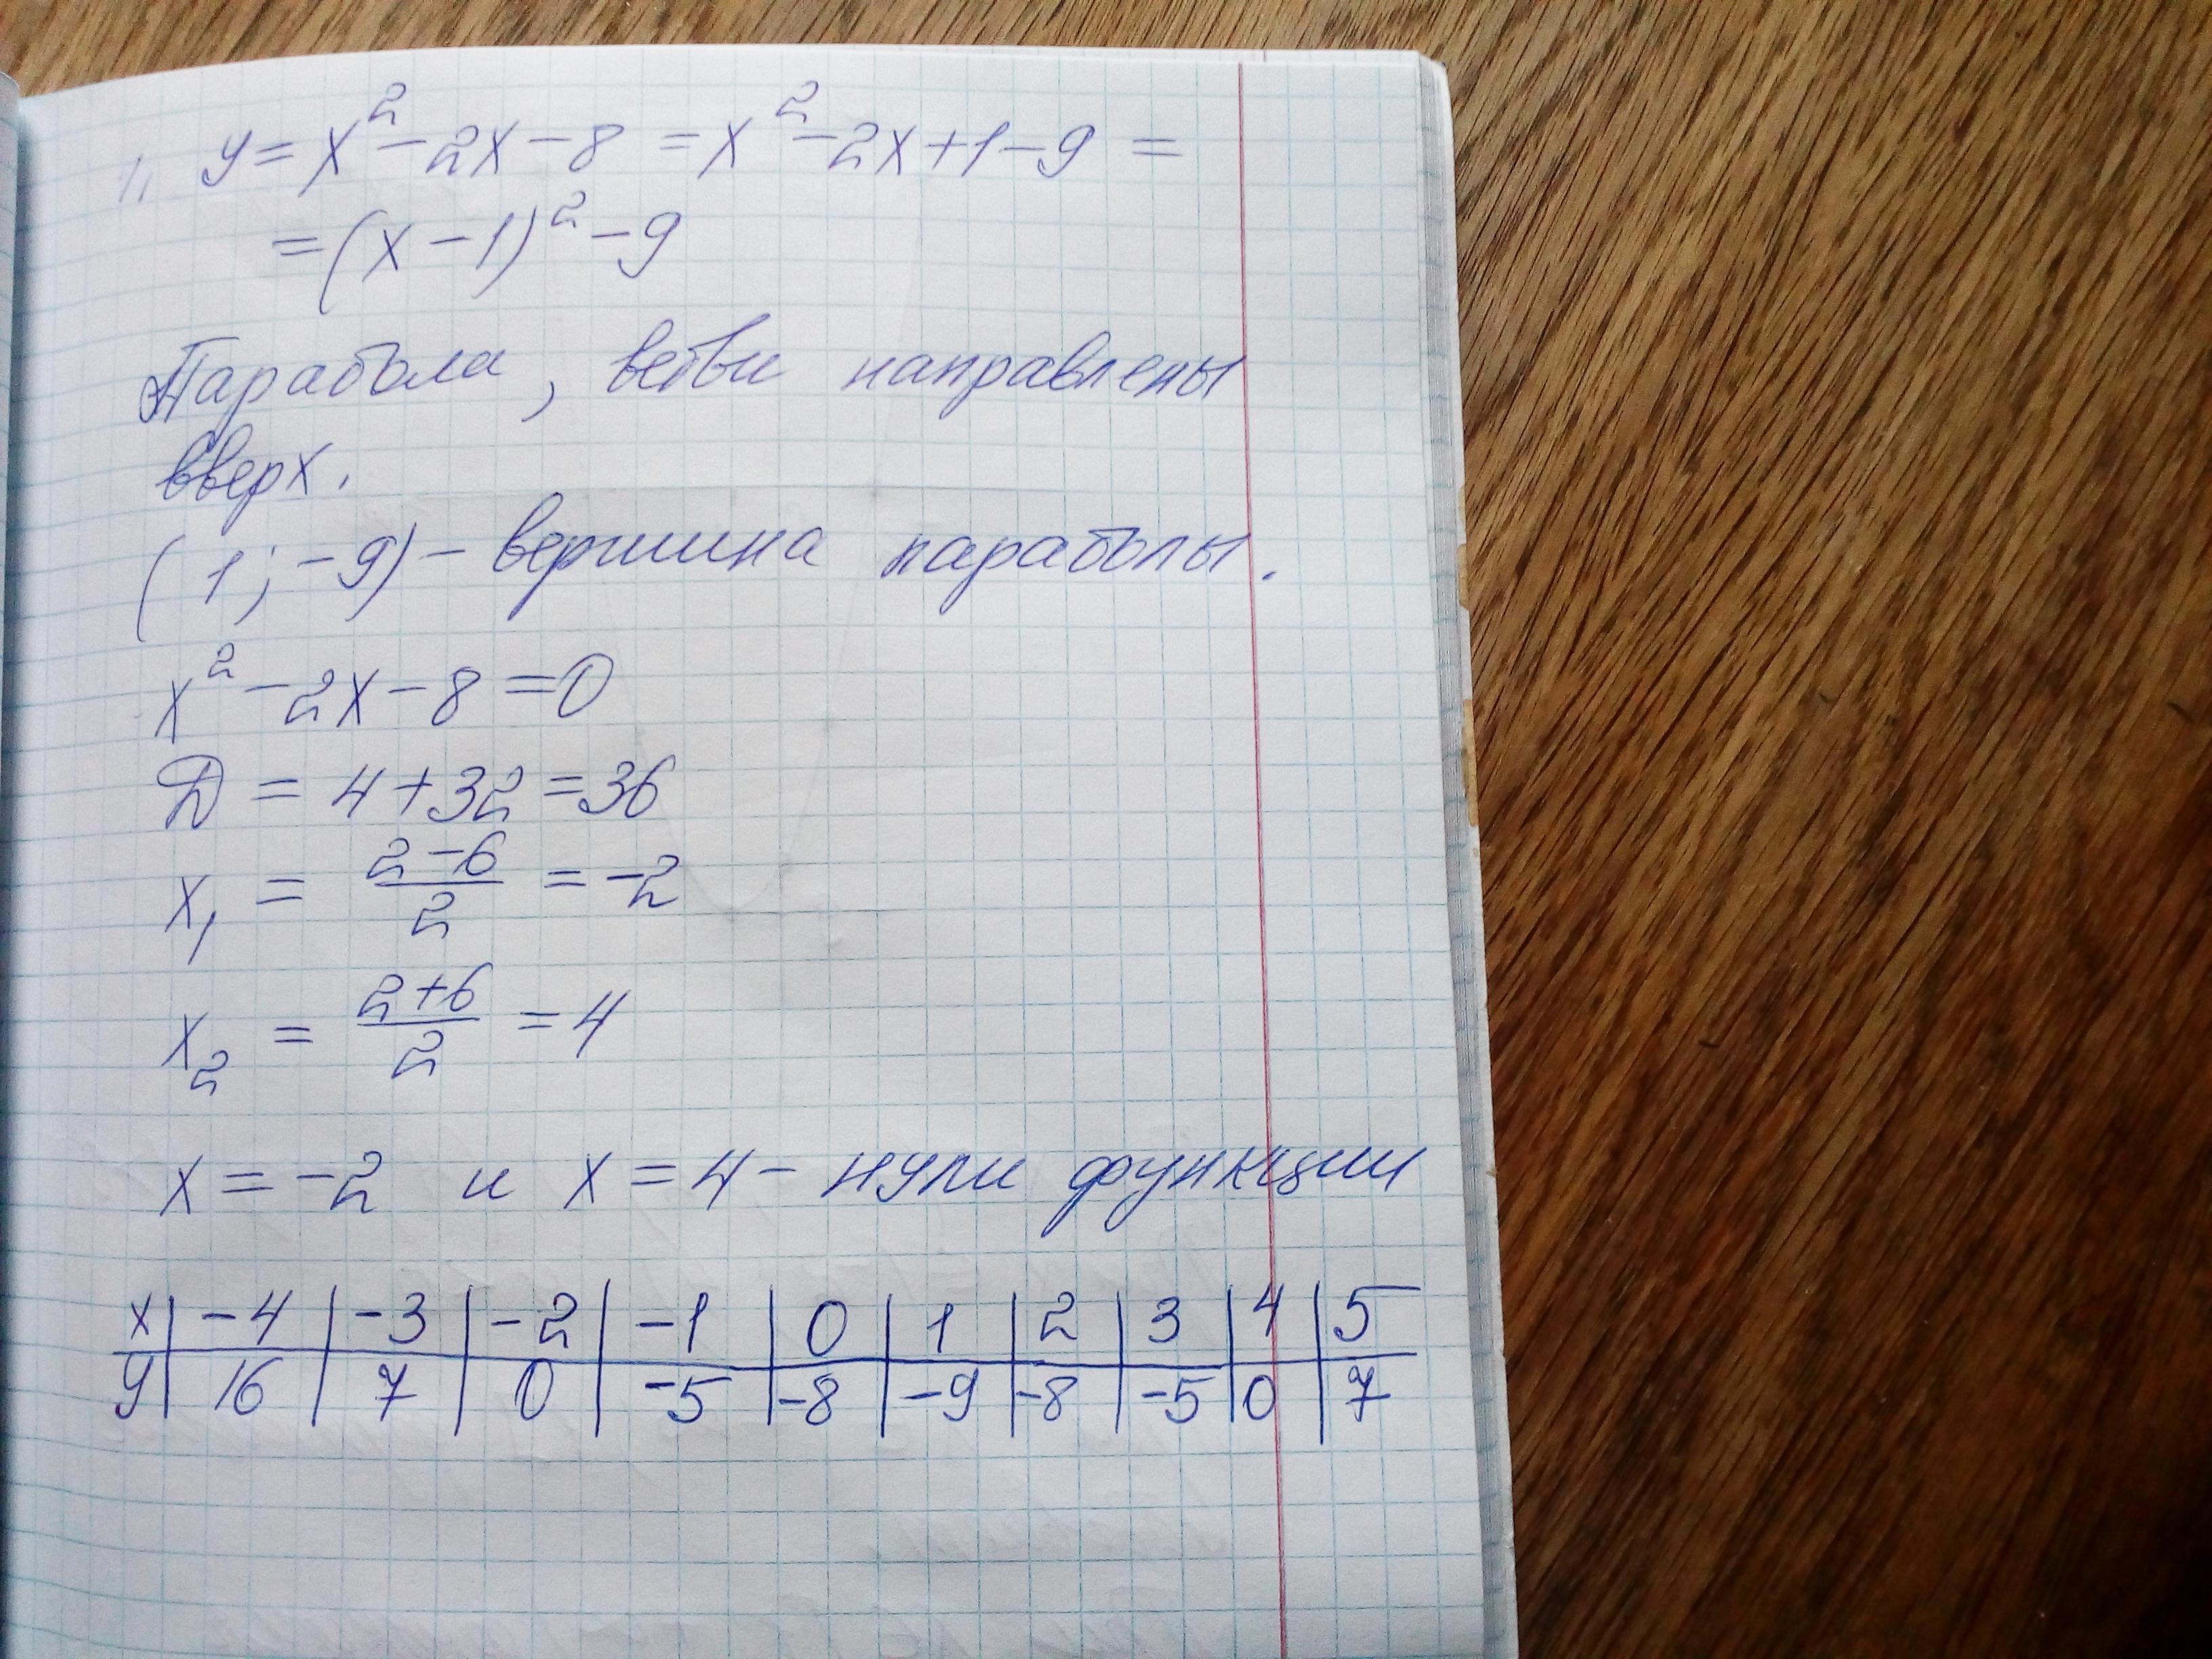 1. y = x² - 2x - 8 = x² - 2x + 1 - 9 =
= (x - 1)² - 9
Парабола, ветви направлены
вверх.
(1; -9) - вершина параболы.
x² - 2x - 8 = 0
Д = 4 + 32 = 36
x₁ = (2 - 6)/2 = -2
x₂ = (2 + 6)/2 = 4
x = -2 и x = 4 - нули функции
x | -4 | -3 | -2 | -1 | 0 | 1 | 2 | 3 | 4 | 5
y | 16 | 7 | 0 | -5 | -8 | -9 | -8 | -5 | 0 | 7